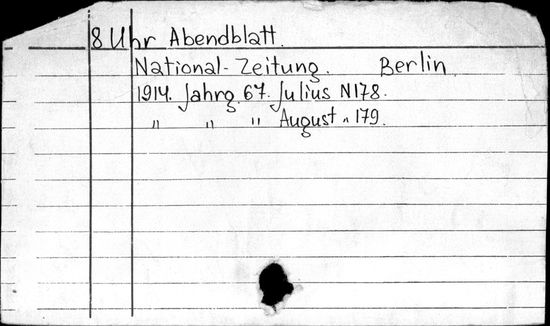 8 Uhr Abendblatt.
National-Zeitung. Berlin
1914. Jahrg. 67. Julius N178.
" " " August " 179.